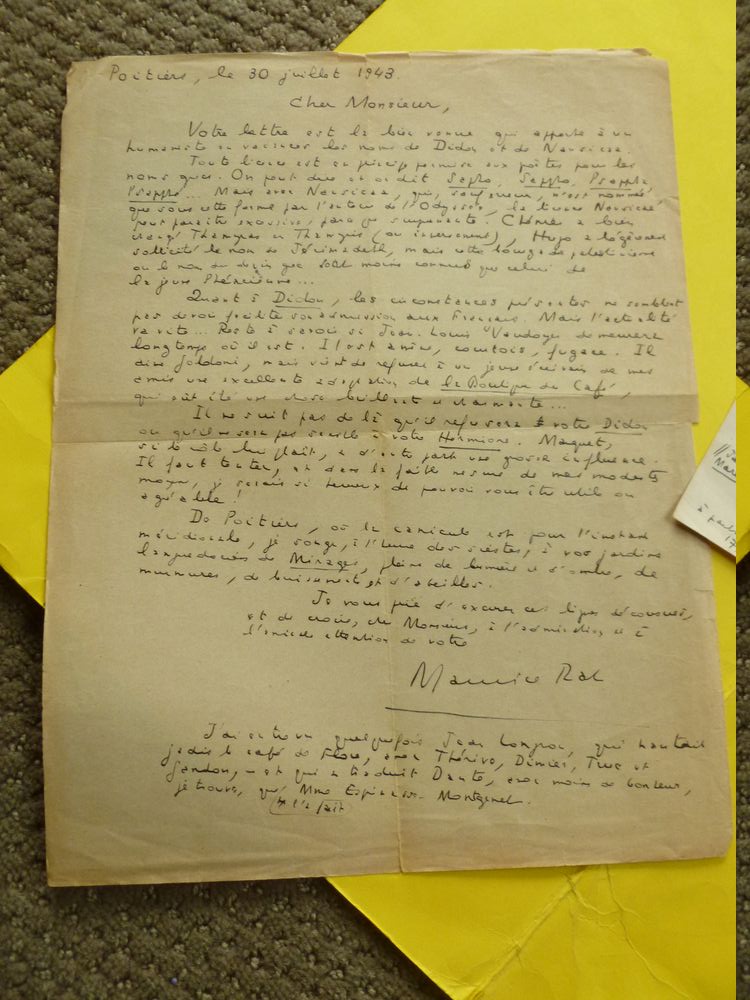 Poitiers, le 30 juillet 1943.
Cher Monsieur,
Votre lettre est la bien venue qui apporte à un
humaniste en vacances les noms de Didon et de Nausicaa.
Toute licence est en principe permise aux poètes pour les
noms grecs. On peut dire et on dit Sapho, Sappho, Psappha,
Psappho... Mais avec Nausicaa, qui, n'est nommée
que sous cette forme par l'auteur de l'Odyssée, la licence Nausicaé
peut paraître excessive, parce que surprenante. Chénier a bien
Thamyras en Thamyris (ou inversement), Hugo a
sollicité le nom de Jérimadeth, mais cette
ou le nom du sont moins connus que celui de
la jeune Phéacienne...
Quant à Didon, les circonstances présentes ne semblent
pas devoir faciliter son admission aux Français. Mais l'actualité
va vite... Reste à savoir si Jean-Louis Vaudoyer demeurera
longtemps où il est. Il est amène, courtois, fugace. Il
aime Goldoni, mais vient de refuser à un jeune écrivain de mes
amis une excellente adaptation de la Boutique du Café,
qui eût été une chose brillante et charmante...
Il ne suit pas de là qu'il refusera votre Didon
ou qu'il ne sera pas sensible à votre Hermione. Maquet,
si le rôle lui plaît, a d'autre part une grosse influence.
Il faut tenter, et dans la faible mesure de mes modestes
moyens, je serais si heureux de pouvoir vous être utile ou
agréable !
De Poitiers, où la canicule est pour l'instant
méridionale, je songe, à l'heure des siestes, à vos jardins
languedociens de Mirages, pleins de lumière et d'ombre, de
murmures, de bruissements et d'abeilles.
Je vous prie d'excuser ces lignes décousues,
et de croire, cher Monsieur, à l'admiration et à
l'amicale attention de votre
Maurice Rat
J'ai retrouvé quelquefois Jean Longnon, qui hantait
jadis le café de Flore, avec Thérive, Dimier, Truc et
Gandon, — et qui a traduit Dante, avec moins de bonheur,
je trouve, que Mme Espinasse-Mongenet.
ne l'a fait